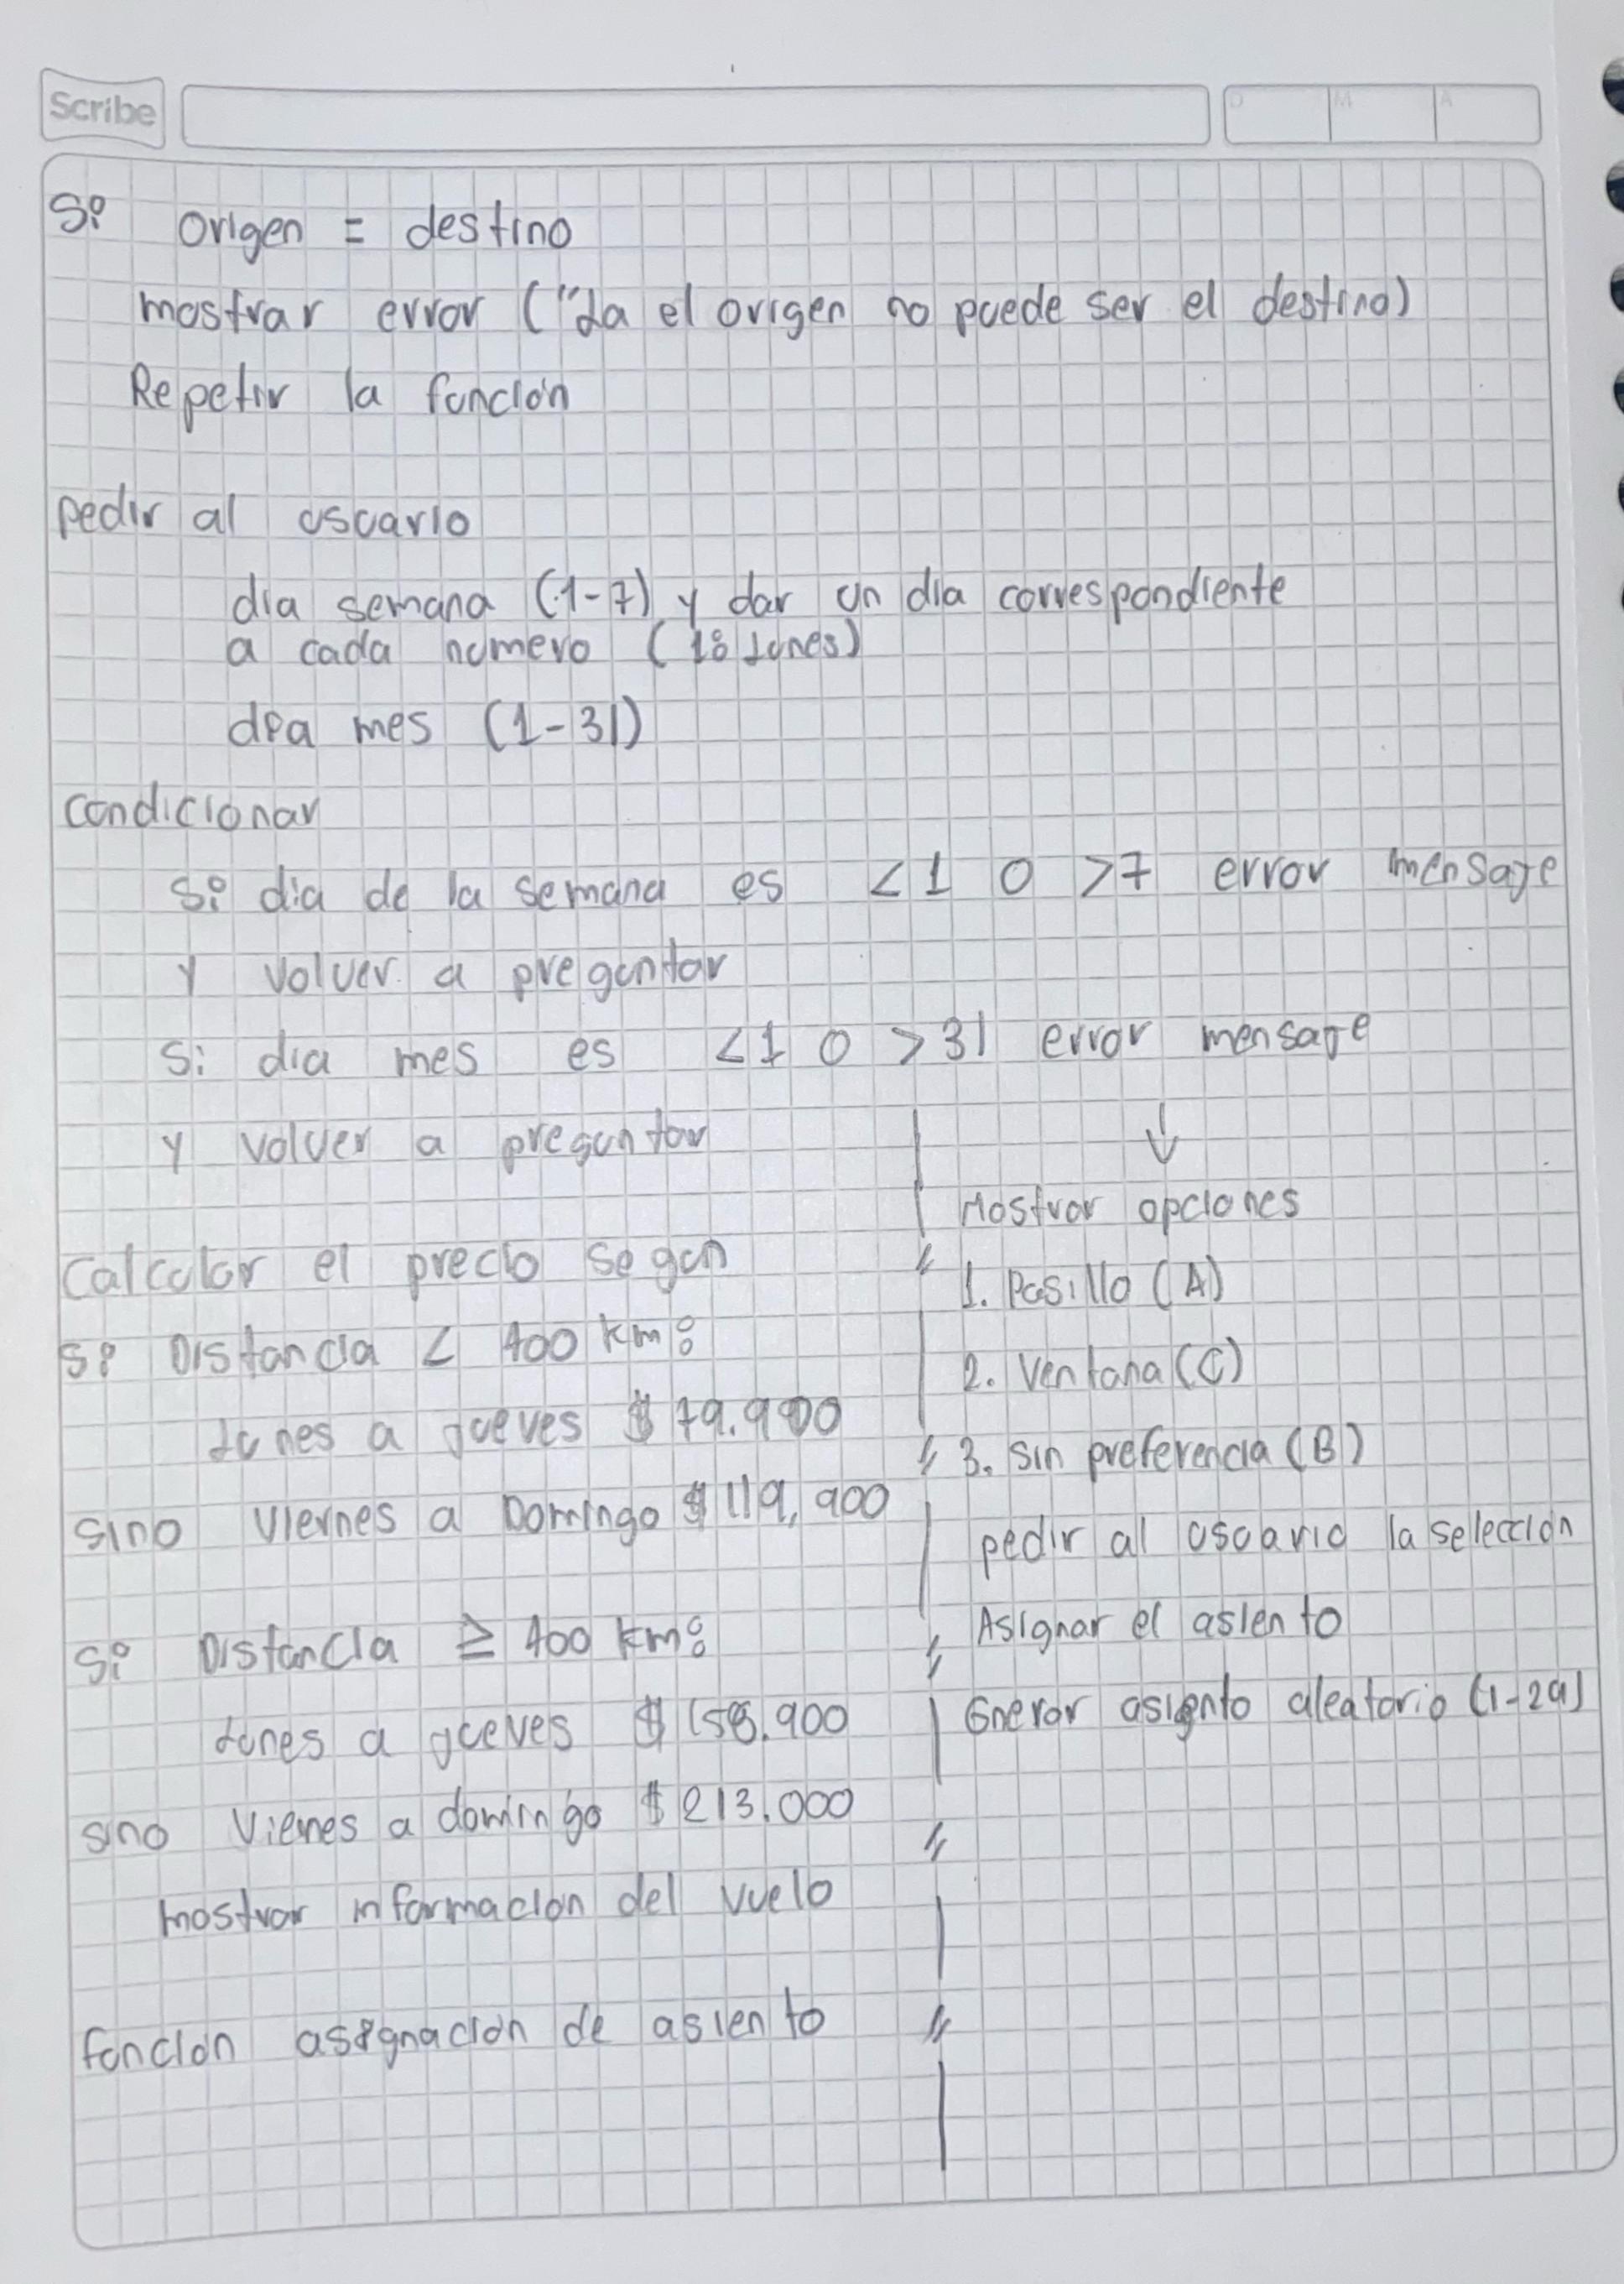 Scribe
D M A
Si origen = destino
mostrar error ("La el origen no puede ser el destino)
Repetir la función
pedir al usuario
dia semana (1-7) y dar un dia correspondiente
a cada numero (1: Lunes)
dia mes (1-31)
condicionar
Si dia de la semana es <1 o >7 error mensaje
y volver a preguntar
Si dia mes es <1 o >31 error mensaje
y volver a preguntar
Calcular el precio segun
Si Distancia < 400 km:
Lunes a jueves $ 79.900
sino Viernes a Domingo $ 119,900
Si Distancia ≥ 400 km:
Lunes a jueves $ 158.900
sino Viernes a domingo $ 213.000
mostrar informacion del vuelo
función asignación de asiento
↓
Mostrar opciones
1. Pasillo (A)
2. Ventana (C)
3. sin preferencia (B)
pedir al usuario la selección
Asignar el asiento
Gnerar asiento aleatorio (1-29)